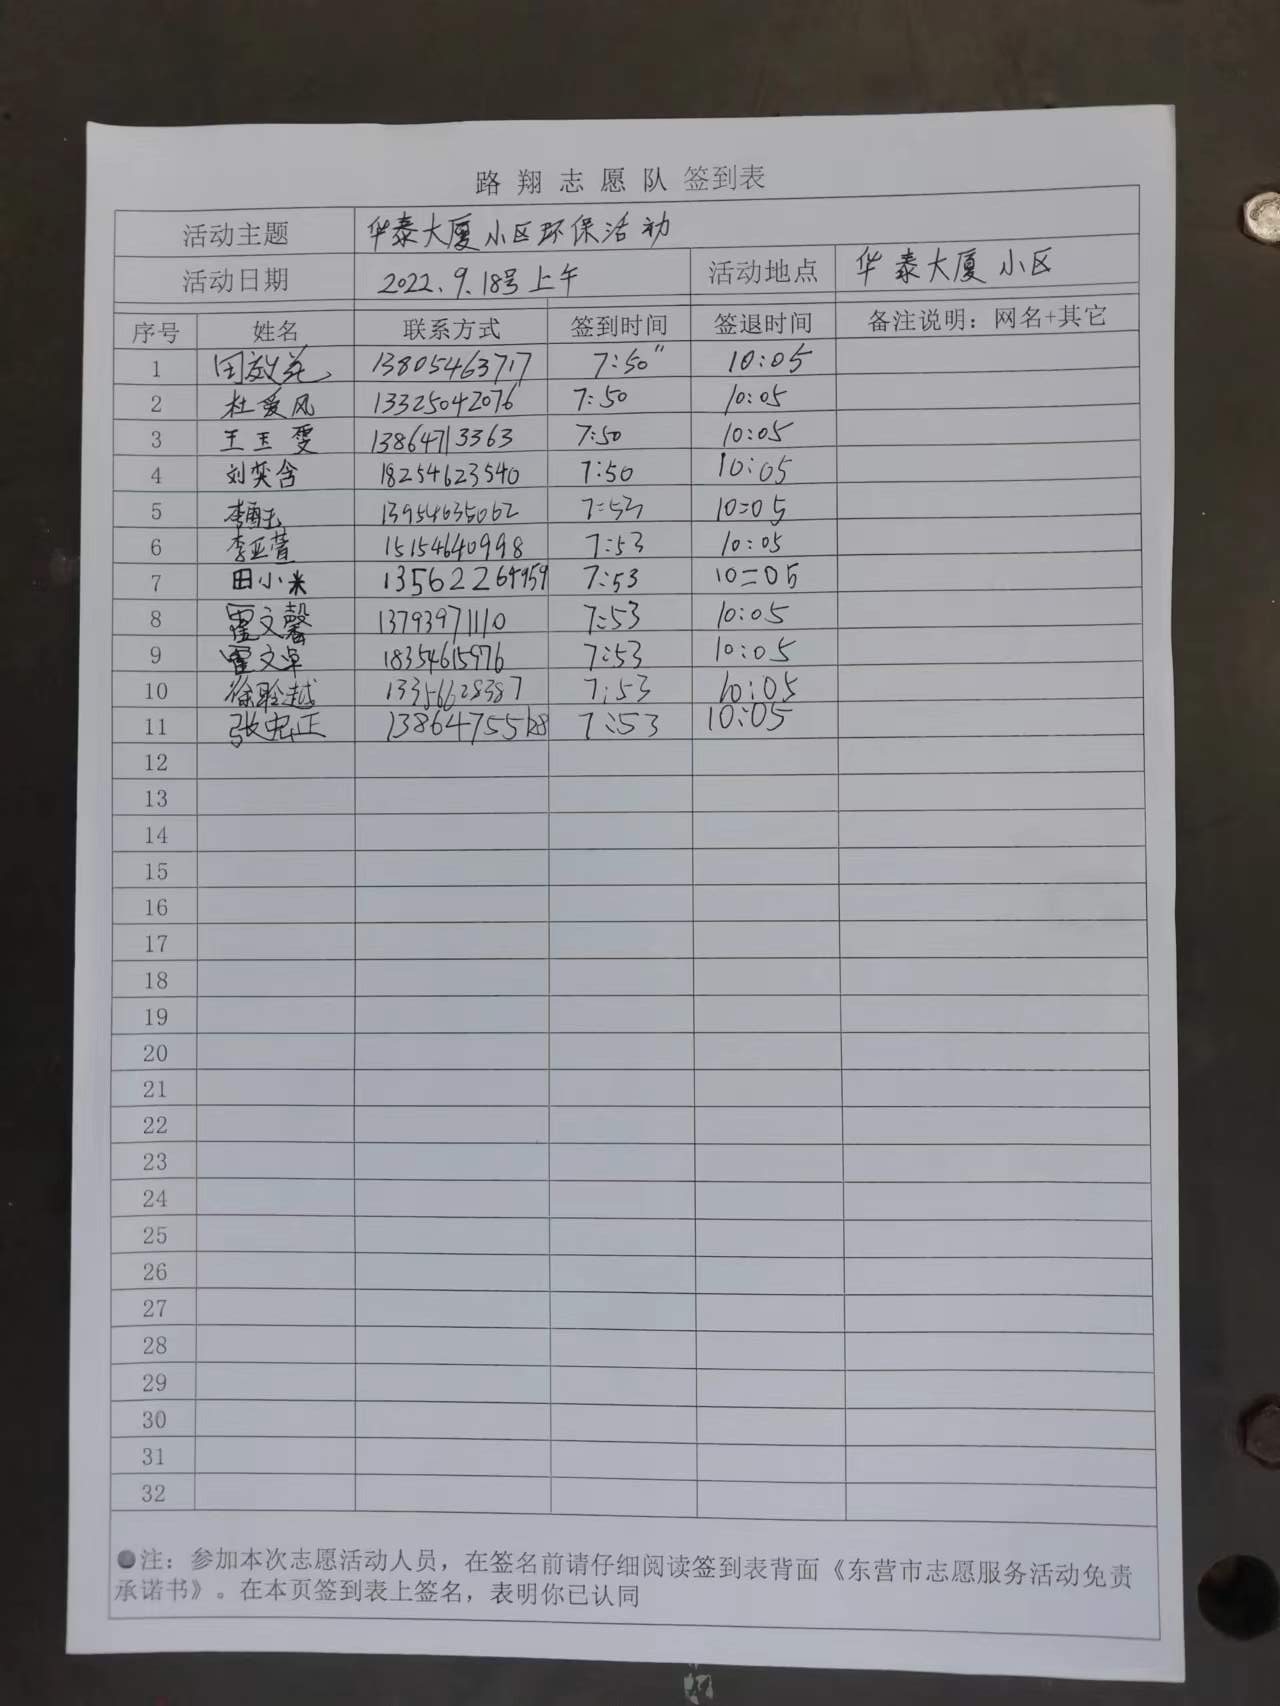 路翔志愿队 签到表
活动主题 华泰大厦小区环保活动
活动日期 2022.9.18号上午 活动地点 华泰大厦小区
序号 姓名 联系方式 签到时间 签退时间 备注说明：网名+其它
1 13805463717 7:50" 10:05
2 杜爱风 13325042076 7:50 10:05
3 王玉雯 13864713363 7:50 10:05
4 刘奕含 18254623540 7:50 10:05
5 13954635062 7:53 10:05
6 李亚萱 15154640998 7:53 10:05
7 田小米 13562264959 7:53 10:05
8 霍文馨 13793971110 7:53 10:05
9 霍文卓 18354615976 7:53 10:05
10 徐聆越 13356628387 7:53 10:05
11 7:53 10:05
12
13
14
15
16
17
18
19
20
21
22
23
24
25
26
27
28
29
30
31
32
●注：参加本次志愿活动人员，在签名前请仔细阅读签到表背面《东营市志愿服务活动免责
承诺书》。在本页签到表上签名，表明你已认同